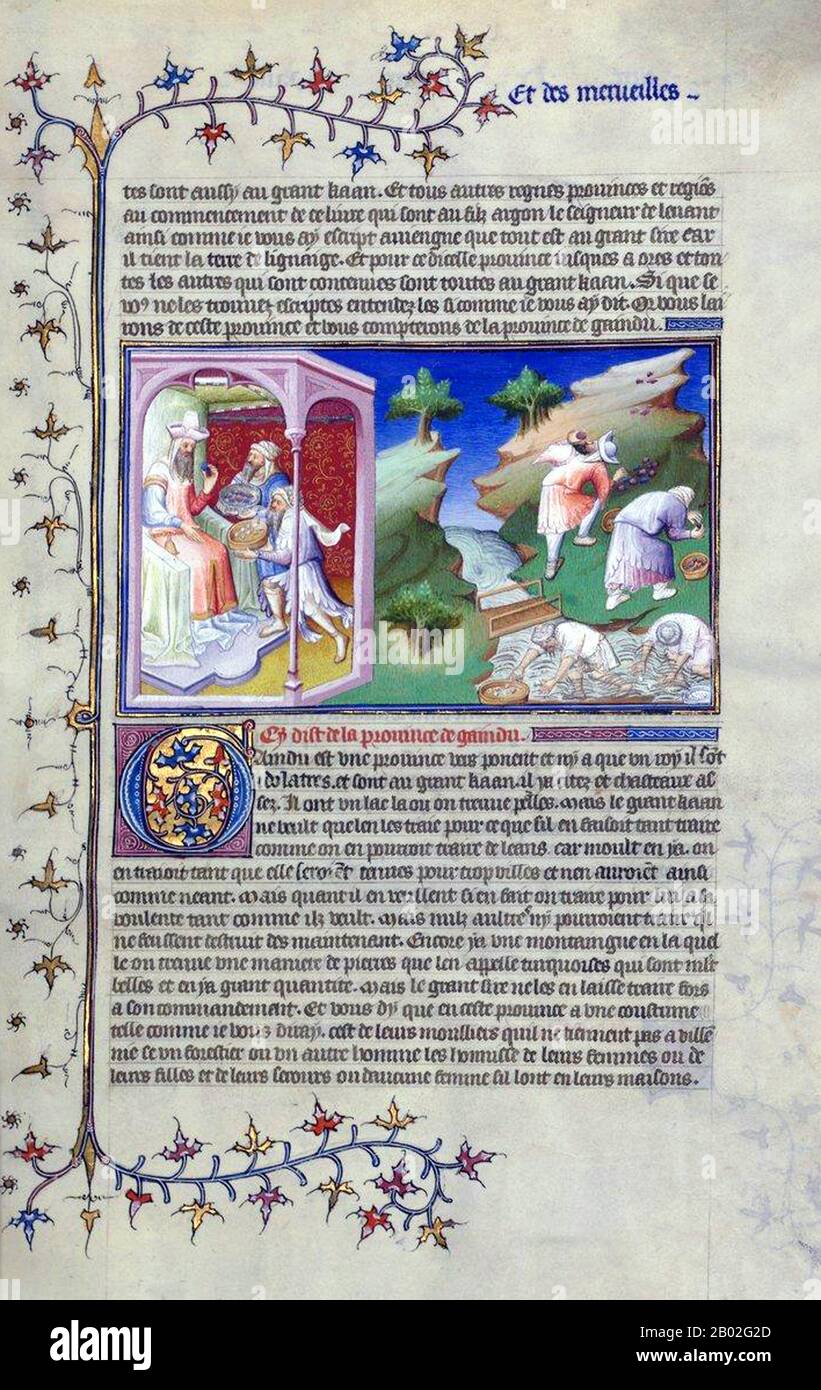 Et des merueilles
tes sont aussy au grant kaan. Et tous autres regnes prouinces et regiõs
au commencement de ce liure qui sont au filz argon le seigneur de leuant
ainsi comme ie vous ay escript auuengne que tout est au grant sire car
il tient la terre de lignaige. Et pour ce dicelle prouince iusques a ores et tou
tes les autres qui sont contenues sont toutes au grant kaan. Si que se
vo9 ne les trouuez escriptes entendez les si comme ie vous ay dit. Or vous lai
rons de ceste prouince et vous compterons de la prouince de gaindu.
Cy dist de la prouince de gaindu.
Gaindu est vne prouince vers ponent et ny a que vn roy il sõt
ydolatres. et sont au grant kaan. il ya citez et chasteaux as
sez. Il ont vn lac la ou on treuue pelles. Mais le grant kaan
ne veult que len les traie pour ce que sil en faisoit tant traire
comme on en pourroit traire de leans. car moult en ya. on
en trairoit tant que elle seroiẽt tenues pour trop villes et nen auroiẽt ainsi
comme neant. Mais quant il en veullent si en fait on traire pour lui a sa
voulente tant comme ilz veult. Mais nulz aultres ny pourroient traire qil
ne feussent destruit des maintenant. Encore ya vne montaingne en la quel
le on treuue vne maniere de pierres que len appelle turquoises qui sont mlt
belles et en ya grant quantite. Mais le grant sire ne les en laisse traire fors
a son commandement. Et vous dy que en ceste prouince a vne coustume
telle comme ie vous diray. cest de leurs moulliers quil ne tiennent pas a villẽ
nie se vn forestier ou vn autre homme les honnisse de leurs femmes ou de
leurs filles et de leurs serours ou daucune femme sil lont en leurs maisons.
alamy
Image ID: 2B02G2D
www.alamy.com